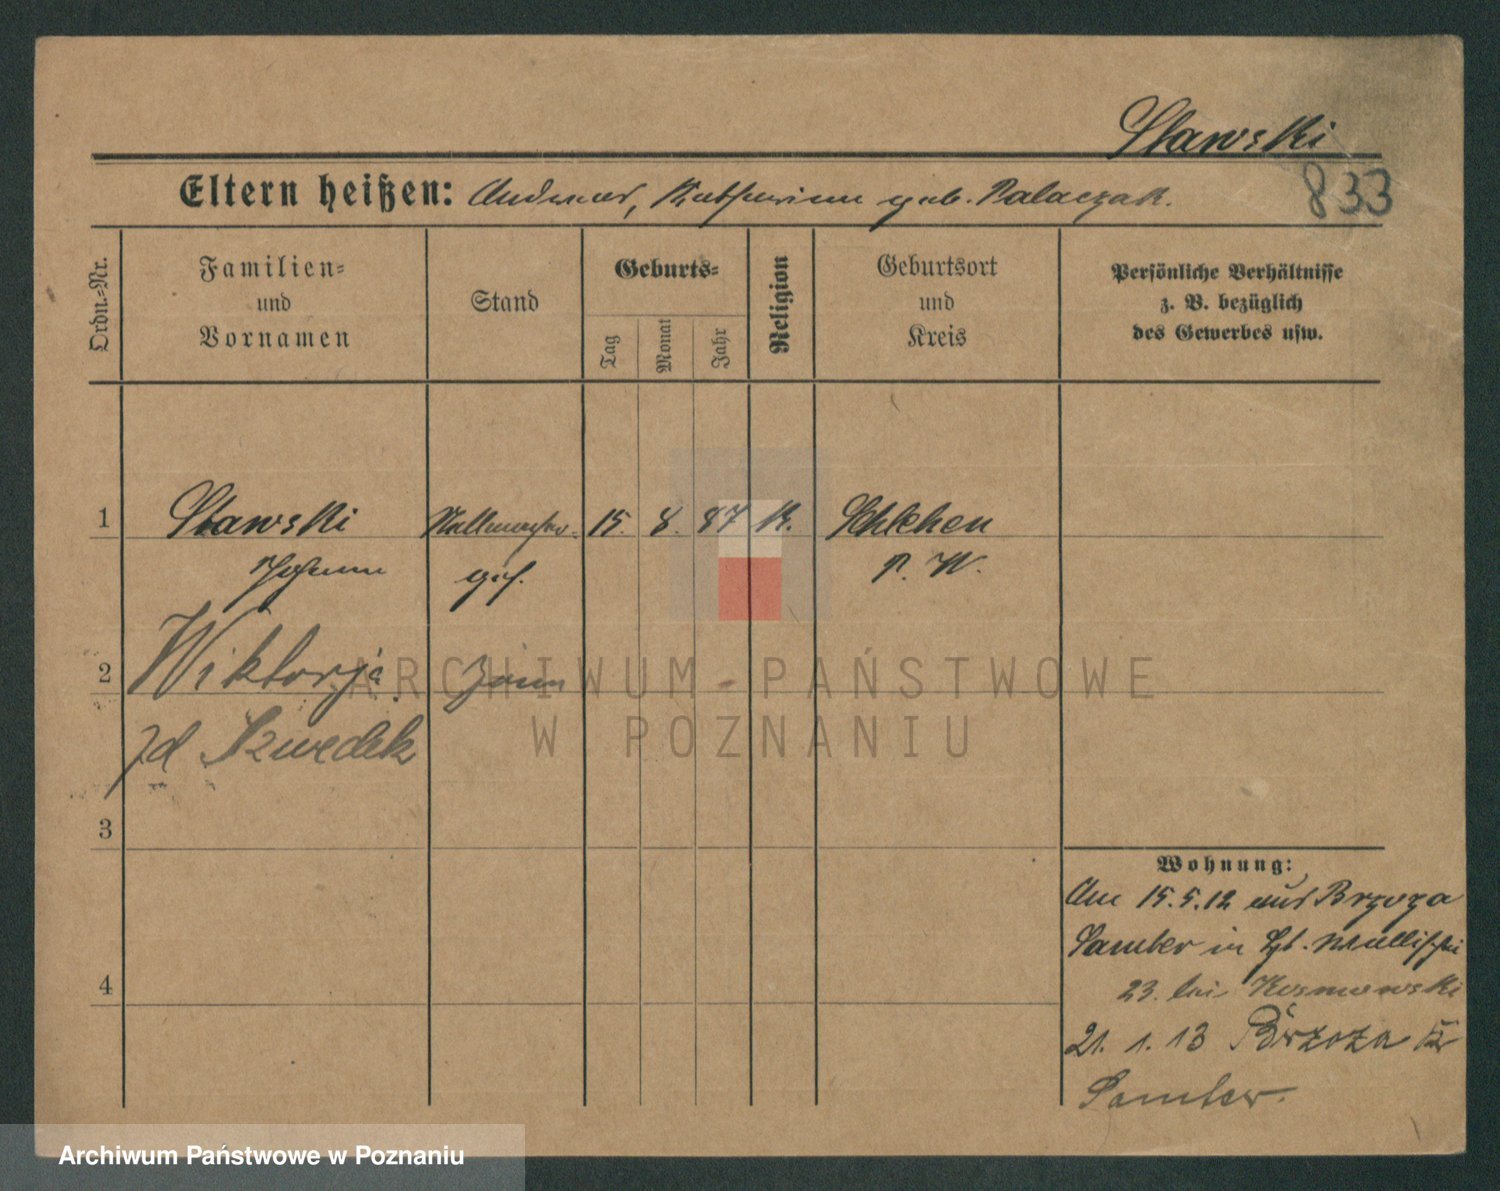 Stawski
833
Eltern heißen: Andreas, Katharina geb. Palaczak.
Ordn.-Nr.
Familien-
und
Vornamen
Stand
Geburts-
Tag
Monat
Jahr
Religion
Geburtsort
und
Kreis
Persönliche Verhältnisse
z. B. bezüglich
des Gewerbes usw.
1
Stawski
15. 8. 87
K.
Johann
P. W.
2
Wiktorja
zd Szwedek
3
4
Wohnung:
Am 15.5.12 aus Brzoza
Samter in
23. bei
21. 1. 13 Brzoza
Samter.
ARCHIWUM PAŃSTWOWE
W POZNANIU
Archiwum Państwowe w Poznaniu